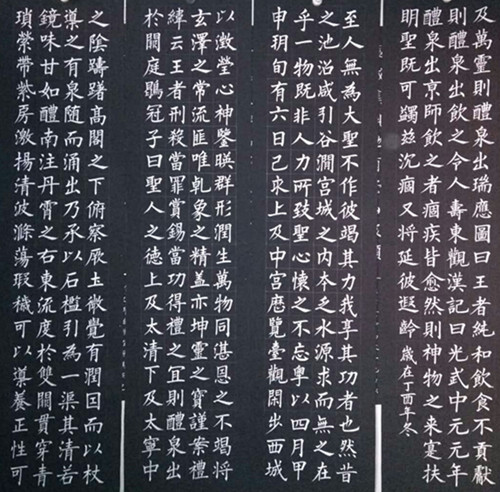 及萬靈則醴泉出瑞應圖曰王者純和飲食不貢獻
則醴泉出飲之令人壽東觀漢記曰光武中元元年
醴泉出京師飲之者痼疾皆愈然則神物之來寔扶
明聖既可蠲茲沈痼又将延彼遐齡 歲在丁酉年冬
至人無為大聖不作彼竭其力我享其功者也然昔
之池沼咸引谷澗宮城之内本乏水源求而無之在
乎一物既非人力所致聖心懷之不忘粤以四月甲
申朔旬有六日己亥上及中宮歷覽臺觀閑步西城
以澂瑩心神鑒暎群形潤生萬物同湛恩之不竭将
玄澤之常流匪唯乾象之精蓋亦坤靈之寶謹案禮
緯云王者刑殺當罪賞錫當功得禮之宜則醴泉出
於闕庭鶡冠子曰聖人之德上及太清下及太寧中
之陰躊躇高閣之下俯察厥土微覺有潤因而以杖
導之有泉随而涌出乃承以石檻引為一渠其清若
鏡味甘如醴南注丹霄之右東流度於雙闕貫穿青
瑣縈帶紫房激揚清波滌蕩瑕穢可以導養正性可